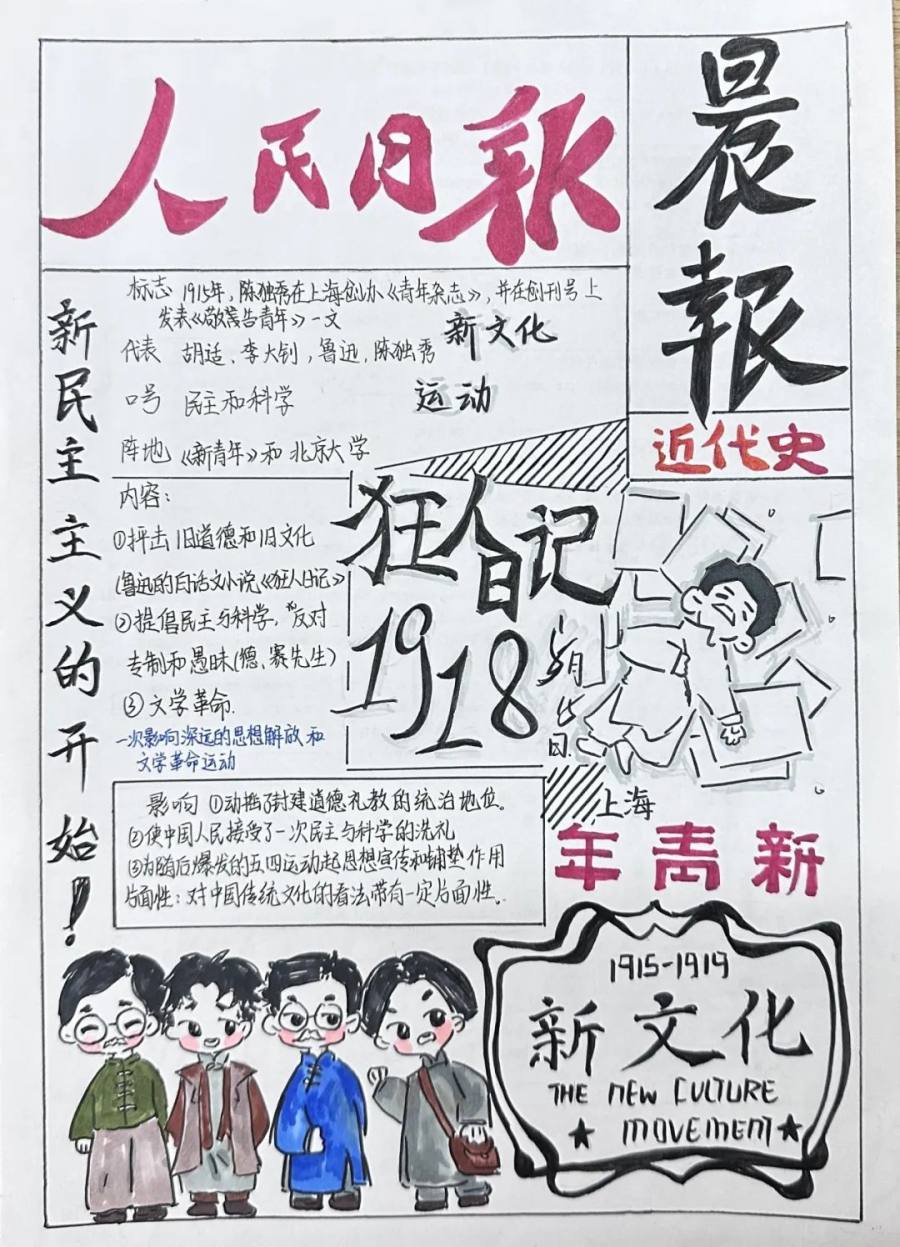 人民日報
晨報
近代史
新民主主义的开始！
标志 1915年，陈独秀在上海创办《青年杂志》，并在创刊号上
发表《敬告青年》一文
代表 胡适、李大钊，鲁迅，陈独秀
口号 民主和科学
阵地 《新青年》和北京大学
新文化
运动
内容：
①抨击旧道德和旧文化
(鲁迅的白话文小说《狂人日记》
②提倡民主与科学，反对
专制和愚昧(德、赛先生)
③文学革命.
一次影响深远的思想解放和
文学革命运动
狂人日记
1918
5月
日
影响 ①动摇了封建道德礼教的统治地位。
②使中国人民接受了一次民主与科学的洗礼
③为随后爆发的五四运动起思想宣传和铺垫作用
片面性：对中国传统文化的看法带有一定片面性。
上海
年青新
1915-1919
新文化
THE NEW CULTURE
★ MOVEMENT ★